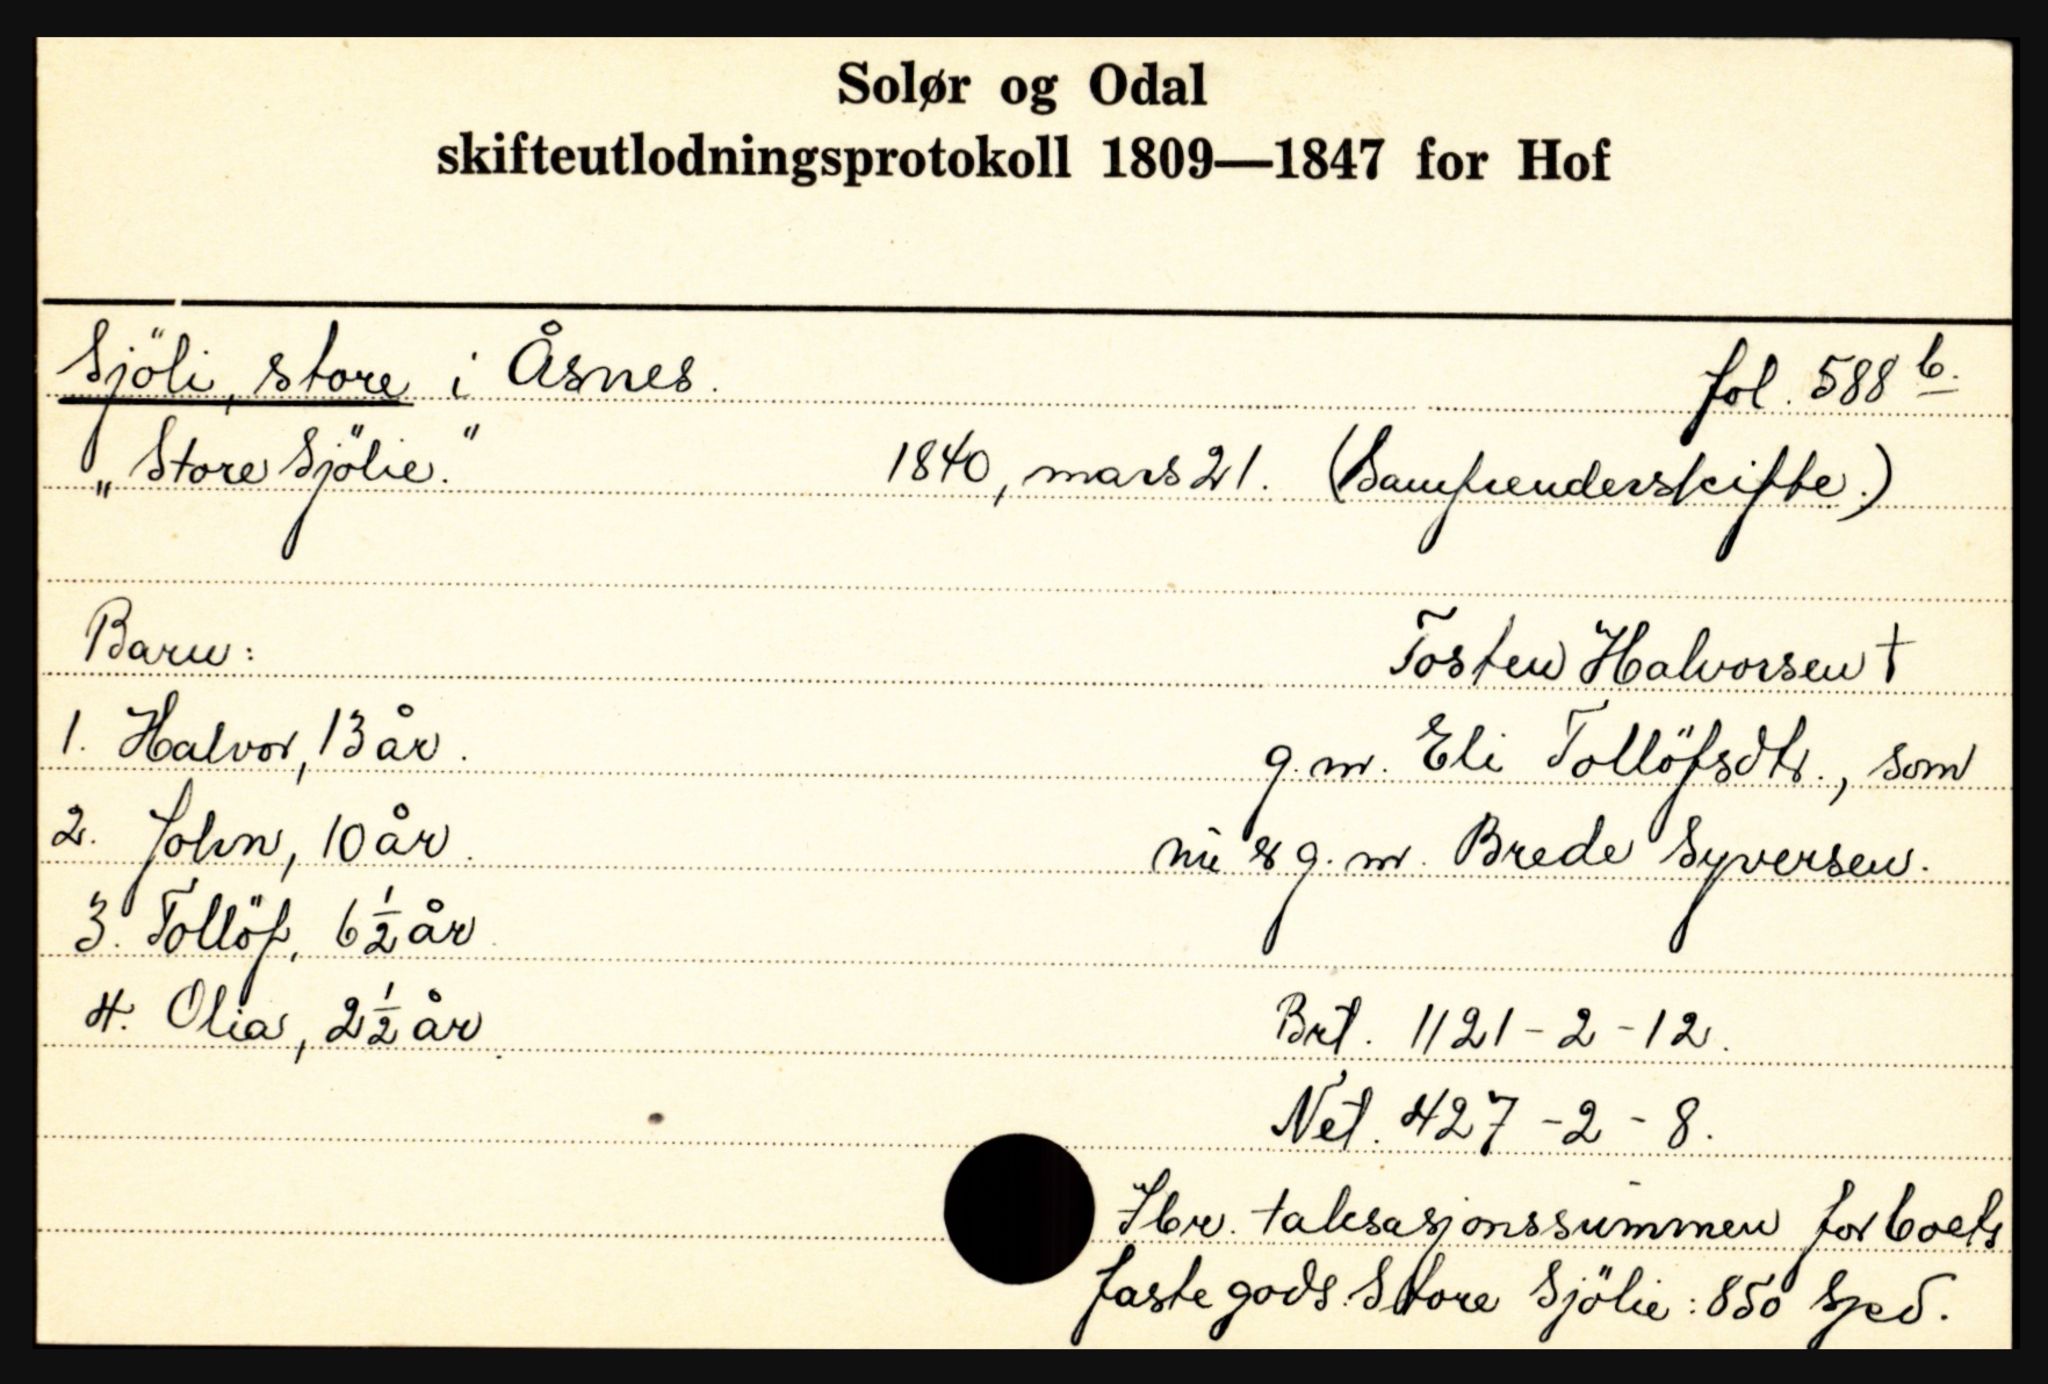 Solør og Odal
skifteutlodningsprotokoll 1809—1847 for Hof
Sjöli, store i Åsnes. fol. 588 b.
„Store Sjölie." 1840, mars 21. (Samfrenderskifte.)
Barn: Tosten Halvorsen †
1. Halvor, 13 år. g.m. Eli Tollöfsdtr., som
2. John, 10 år. nu er g.m. Brede Syversen.
3. Tollöf, 6 1/2 år.
4. Olia, 2 1/2 år. Brt. 1121-2-12.
Net. 427-2-8.
Ibr. taksasjonssummen for boets
faste gods Store Sjölie: 850 Spd.